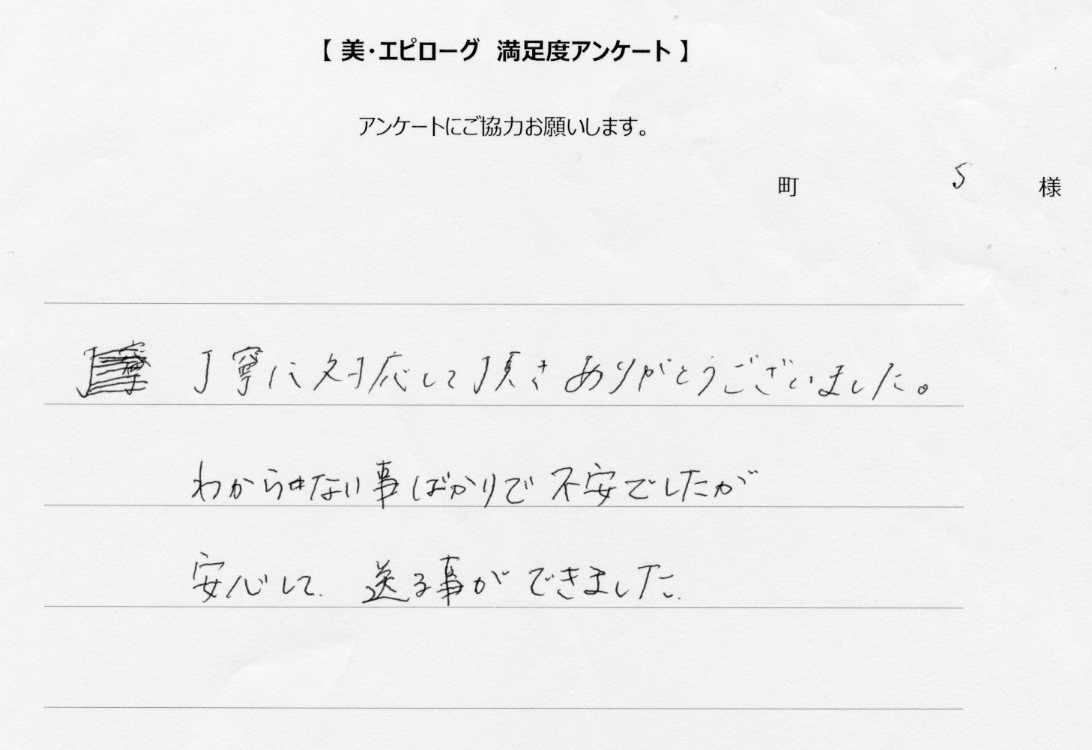 【 美・エピローグ 満足度アンケート 】
アンケートにご協力お願いします。
町 S 様
丁寧に対応して頂きありがとうございました。
わからない事ばかりで不安でしたが
安心して、送る事ができました.